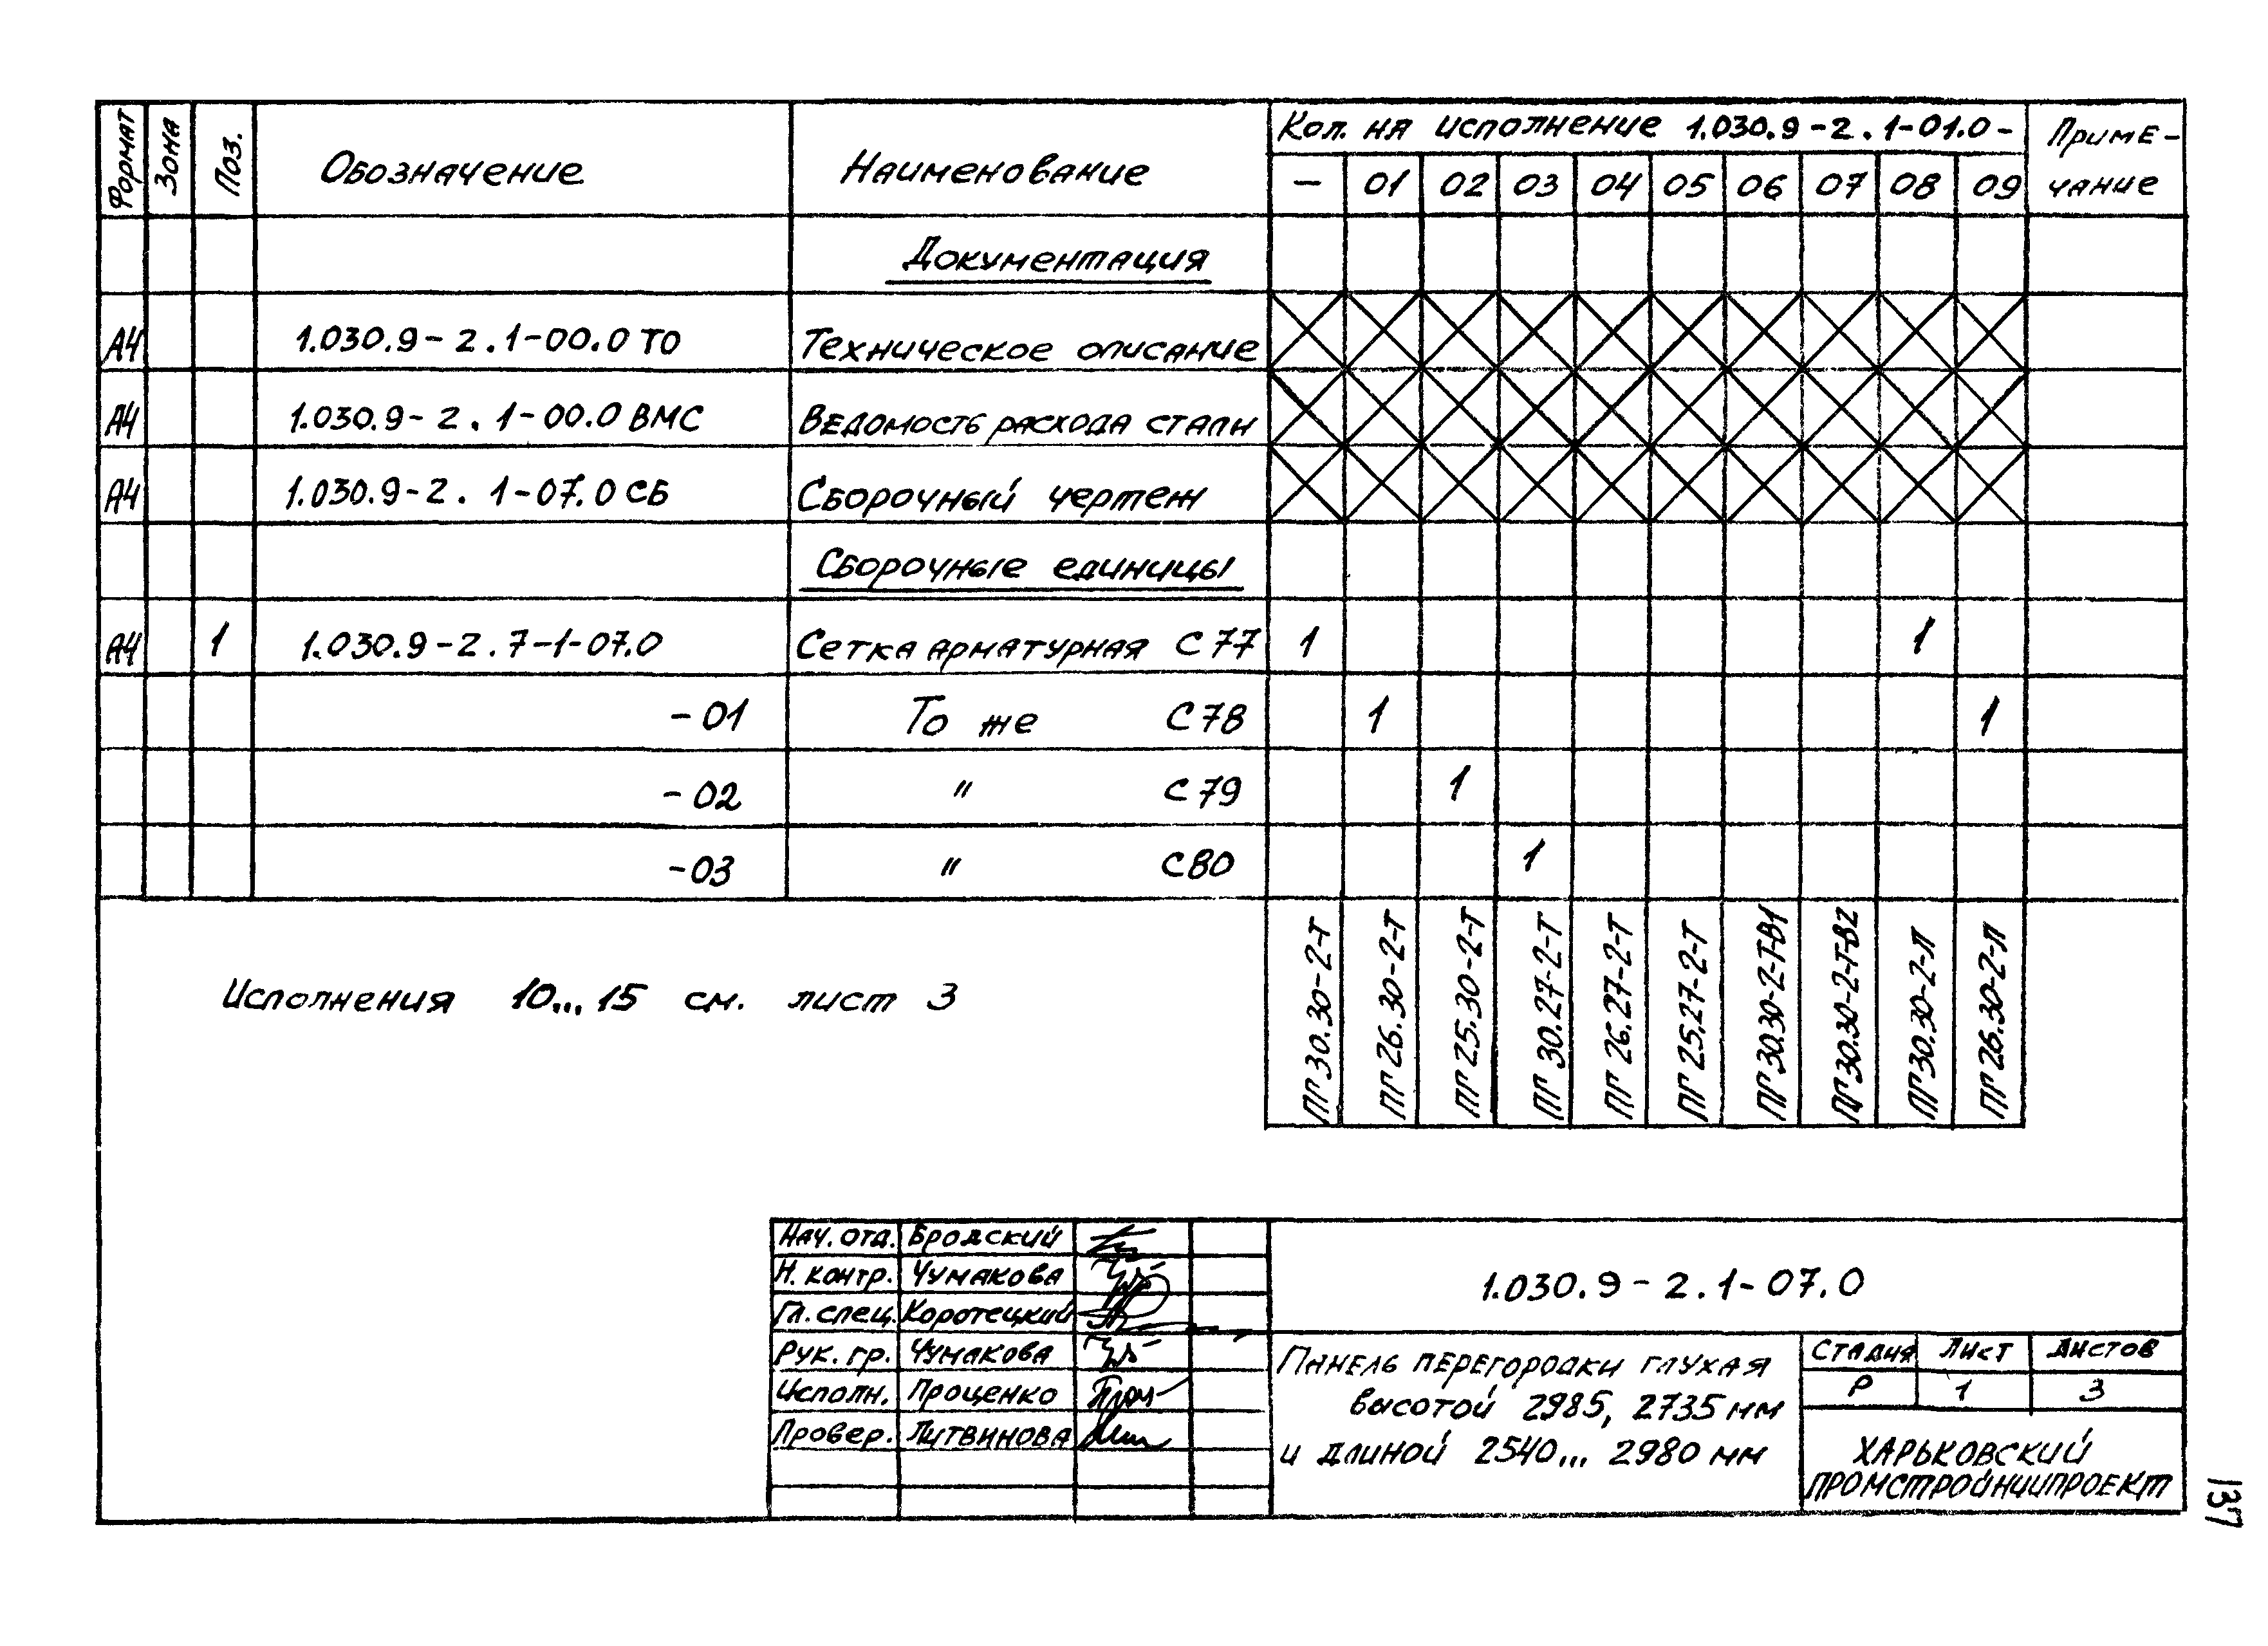 Формат Зона Поз. Обозначение Наименование Кол. на исполнение 1.030.9-2.1-01.0- Приме-
чание
— 01 02 03 04 05 06 07 08 09
Документация
А4 1.030.9-2.1-00.0 ТО Техническое описание
А4 1.030.9-2.1-00.0 ВМС Ведомость расхода стали
А4 1.030.9-2.1-07.0 СБ Сборочный чертеж
Сборочные единицы
А4 1 1.030.9-2.7-1-07.0 Сетка арматурная С77 1 1
-01 То же С78 1 1
-02 " С79 1
-03 " С80 1
ПГ30.30-2-Т
ПГ26.30-2-Т
ПГ25.30-2-Т
ПГ30.27-2-Т
ПГ26.27-2-Т
ПГ25.27-2-Т
ПГ30.30-2-Т-В1
ПГ30.30-2-Т-В2
ПГ30.30-2-Л
ПГ26.30-2-Л
Исполнения 10...15 см. лист 3
Нач. отд. Бродский
Н. контр. Чумакова
Гл. спец. Коротецкий
Рук. гр. Чумакова
Исполн. Проценко
Провер. Литвинова
1.030.9-2.1-07.0
Панель перегородки глухая
высотой 2985, 2735 мм
и длиной 2540... 2980 мм
Стадия Лист Листов
Р 1 3
ХАРЬКОВСКИЙ
ПРОМСТРОЙНИИПРОЕКТ
137